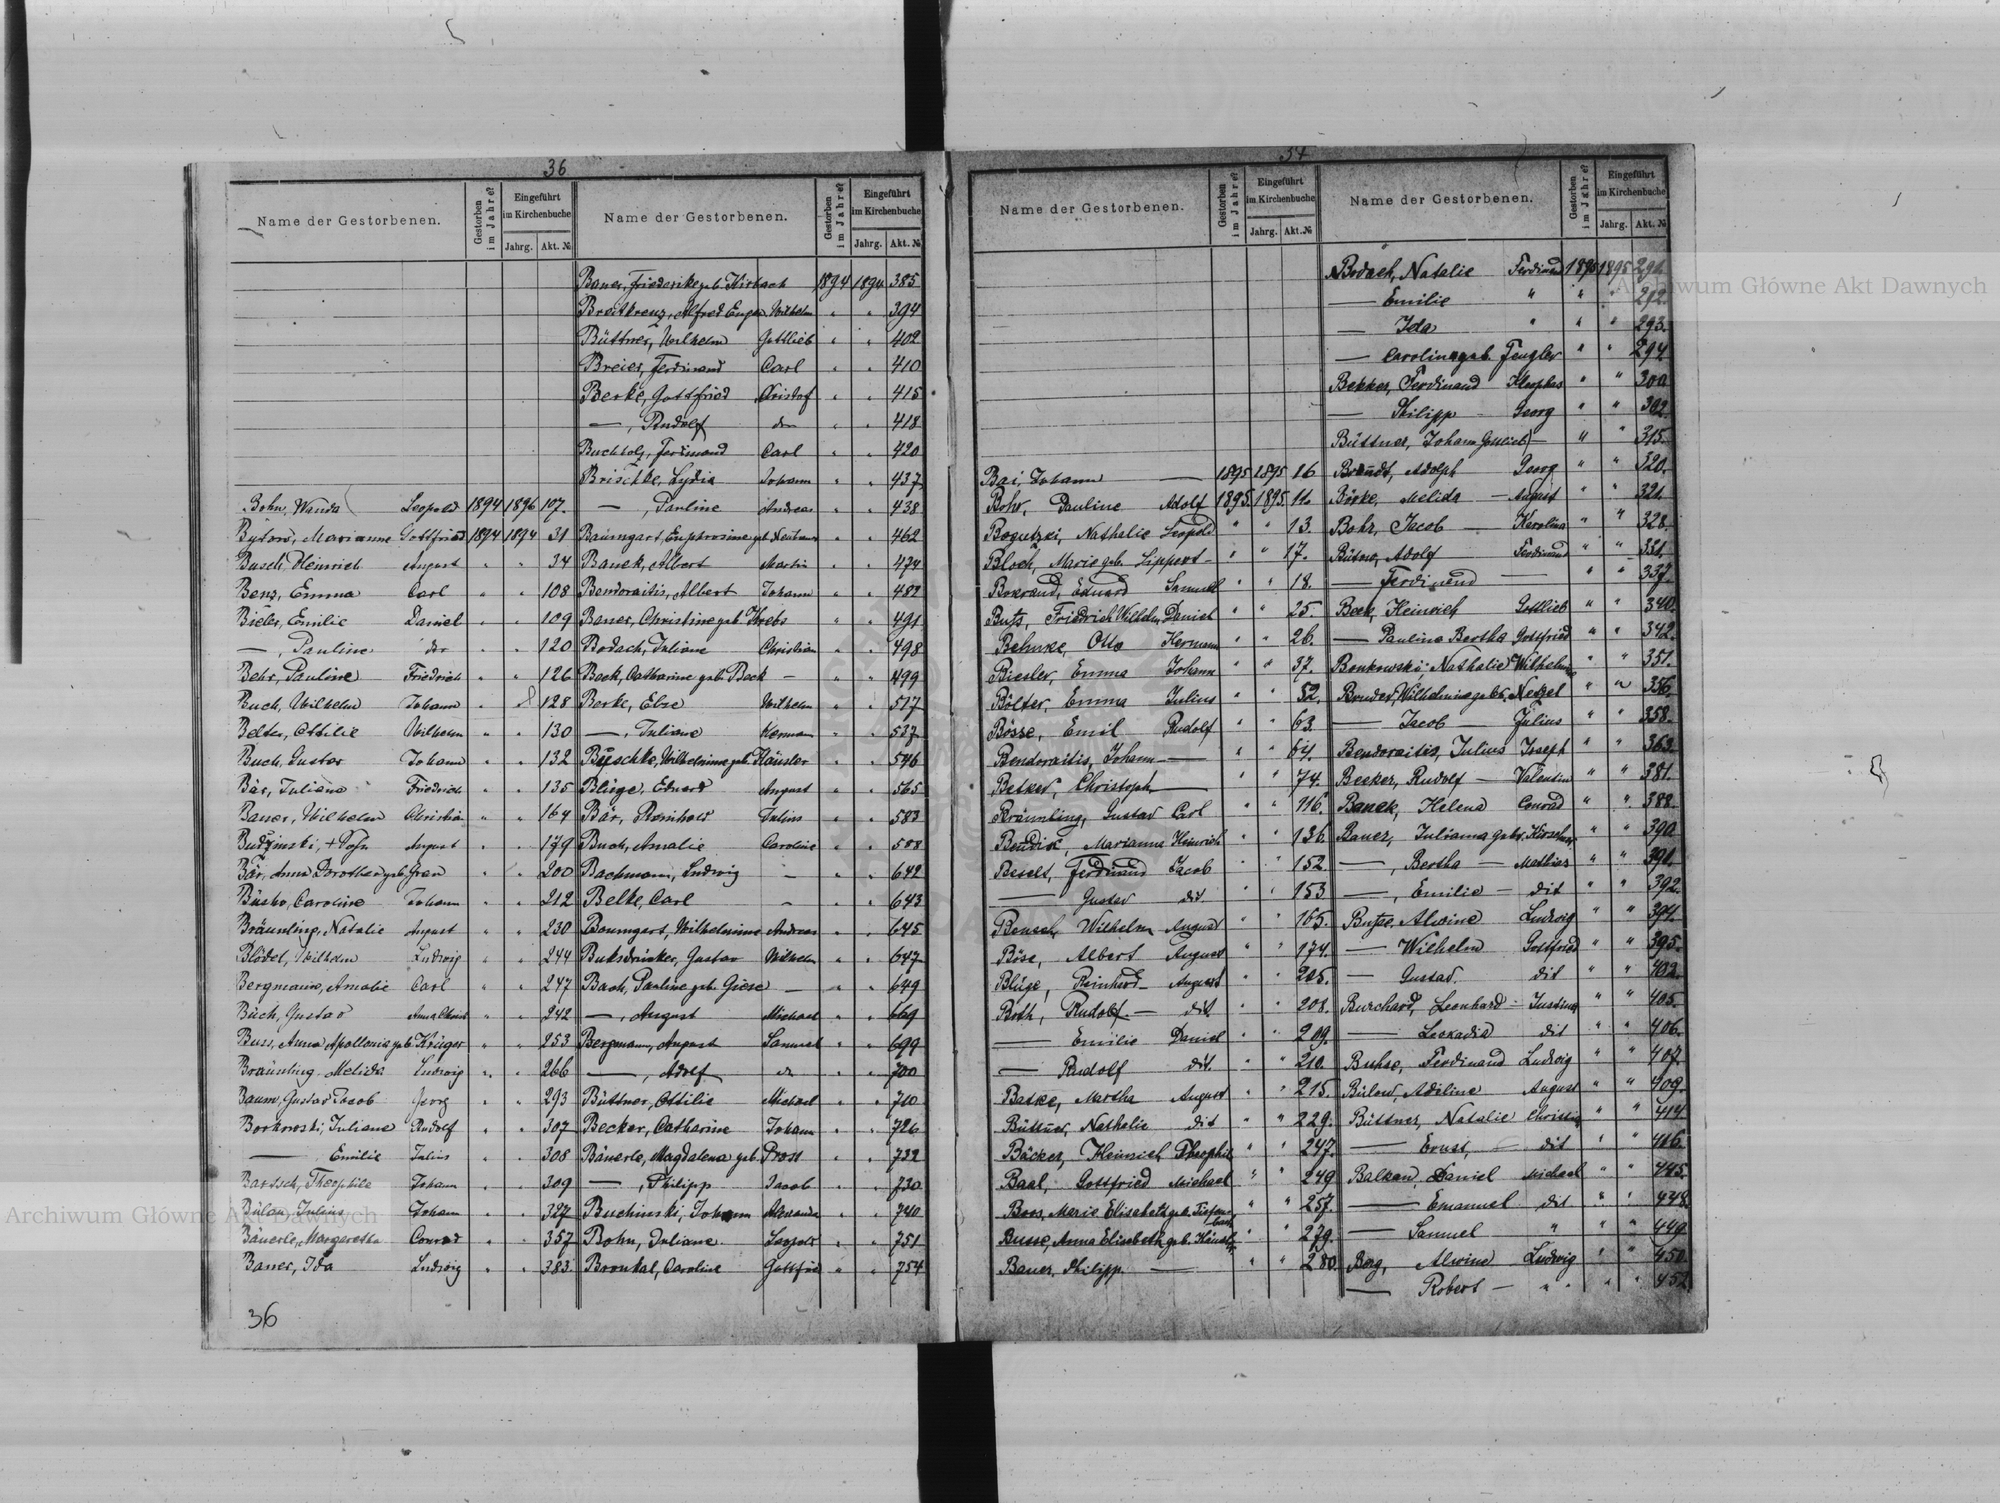 36
Name der Gestorbenen.
Gestorben im Jahre?
Eingeführt im Kirchenbuche
Jahrg.
Akt. №
Bohn, Wanda Leopold 1894 1896 107.
Bytow, Marianne Gottfried 1894 1894 31
Busch, Heinrich August " " 34
Benz, Emma Carl " " 108
Bieler, Emilie Daniel " " 109
—, Pauline " " 120
Behr, Pauline Friedrich " " 126
Buch, Wilhelm Johann " " 128
Belter, Ottilie Wilhelm " " 130
Buch, Gustav Johann " " 132
Bär, Juliane Friedrich " " 135
Bauer, Wilhelm Christian " " 164
August " " 179
Bär, Anna Dorothea geb. " " 200
Caroline Johann " " 212
Bräunling, Natalie August " " 230
Blödel, Wilhelm Ludwig " " 244
Bergmann, Amalie Carl " " 247
Buch, Gustav " " 242
Buss, Anna Apollonia geb. Krüger " " 253
Bräunling, Melida Ludwig " " 266
Baum, Gustav Jacob Georg " " 293
Borkowski, Juliane Rudolf " " 307
— Emilie Julius " " 308
Bartsch, Theophile Johann " " 309
Bülau, Julius Johann " " 327
Bäuerle, Margaretha Conrad " " 357
Bauer, Ida Ludwig " " 383
36
Name der Gestorbenen.
Gestorben im Jahre?
Eingeführt im Kirchenbuche
Jahrg.
Akt. №
Bauer, Friederike geb. Hirbach 1894 1894 385
Breitkreuz, Alfred Eugen Wilhelm " " 394
Büttner, Wilhelm Gottlieb " " 402
Breier, Ferdinand Carl " " 410
Berke, Gottfried Cristof " " 415
—, Rudolf " " 418
Buchholz, Ferdinand Carl " " 420
Brischke, Lydia Johann " " 437
—, Pauline Andreas " " 438
Baumgart, Euphrosine geb. " " 462
Banek, Albert Martin " " 474
Bendoraitis, Albert Johann " " 482
Bauer, Christine geb. Krebs " " 491
Bodach, Juliane Christian " " 498
Beck, Catharine geb. Beck — " " 499
Berke, Wilhelm " " 517
—, Juliane Herman " " 537
Wilhelmine geb. Häusler " " 546
Bliege, Eduard August " " 565
Bär, Reinhold Julius " " 583
Buch, Amalie Caroline " " 588
Bachmann, Ludwig — " " 642
Belke, Carl — " " 643
Baumgart, Wilhelmine Andreas " " 645
Gustav Wilhelm " " 647
Bach, Pauline geb. Giese — " " 649
—, August Michael " " 669
Bergmann, August Samuel " " 699
—, Adolf " " 700
Büttner, Ottilie Michael " " 710
Becker, Catharine Johann " " 726
Bäuerle, Magdalena geb. Prost " " 732
—, Philipp Jacob " " 730
Buchinski, Johann " " 740
Bohn, Juliane Leopold " " 751
Caroline Gottfried " " 754
Name der Gestorbenen.
Gestorben im Jahre?
Eingeführt im Kirchenbuche
Jahrg.
Akt. №
Bai, Johann — 1895 1895 16
Bohr, Pauline Adolf 1895. 1895. 11.
Bogutzki, Nathalie Leopold " " 13.
Bloch, Marie geb. Lippert — " " 17.
Eduard Samuel " " 18.
Friedrich Wilhelm Daniel " " 25.
Behnke, Otto Hermann " " 26.
Biesler, Emma Johann " " 37.
Bölter, Emma Julius " " 52.
Bösse, Emil Rudolf " " 63.
Bendoraitis, Johann — " " 64.
Betker, Christoph — " " 74.
Bräunling, Gustav Carl " " 116.
Marianna Heinrich " " 136.
Ferdinand Jacob " " 152
— Gustav dit. " " 153
Wilhelm August " " 165.
Böse, Albert August " " 174.
Blüge, Reinhard August " " 205.
Both, Rudolf — dit. " " 208.
— Emilie Daniel " " 209.
— Rudolf dit. " " 210.
Batke, Martha August " " 215.
Büttner, Nathalie dit " " 229.
Bäcker, Heinrich Theophil " " 247.
Baal, Gottfried Michael " " 249
Boos, Marie Elisabeth geb. Tiefenbach " " 257.
Busse, Anna Elisabeth geb. " " 279.
Bauer, Philipp — " " 280.
Name der Gestorbenen.
Gestorben im Jahre?
Eingeführt im Kirchenbuche
Jahrg.
Akt. №
Bodach, Natalie Ferdinand 1895 1895 291.
— Emilie " " " 292.
— Ida " " " 293.
— Caroline geb. Fengler " " 294
Bekker, Ferdinand Kleophas " " 300
— Philipp — Georg " " 302.
Büttner, Johann Gottlieb — " " 315.
Brandt, Adolph Georg " " 320.
Melida — August " " 321.
Bohr, Jacob — Karolina " " 328.
Bütow, Adolf Ferdinand " " 331.
— Ferdinand — " " 337.
Beck, Heinrich Gottlieb " " 340.
— Pauline Bertha Gottfried " " 342.
Bonkowski, Nathalie Wilhelmine " " 351.
Bruder, Wilhelmine geb. Netzel " " 356.
— Jacob — Julius " " 358.
Bendoraitis, Julius Joseph " " 363.
Becker, Rudolf — Valentin " " 381.
Banek, Helena Conrad " " 388.
Bauer, Julianna geb. " " 390.
—, Bertha — Mathias " " 391.
—, Emilie — dit " " 392.
Alwine Ludwig " " 394.
— Wilhelm Gottfried " " 395.
— Gustav. dit " " 402.
Burchard, Leonhard — Justine " " 405.
— Leokadia dit " " 406.
Buhse, Ferdinand Ludwig " " 407.
Bülow, Adeline August " " 409.
Büttner, Natalie Christian " " 414
— Ernst, — dit " " 416.
Balkau, Daniel Michael " " 445.
— Emanuel dit " " 448.
— Samuel " " " 449.
Berg, Alwine Ludwig " " 450.
— Robert — " " " 452
Archiwum Główne Akt Dawnych
Archiwum Główne Akt Dawnych